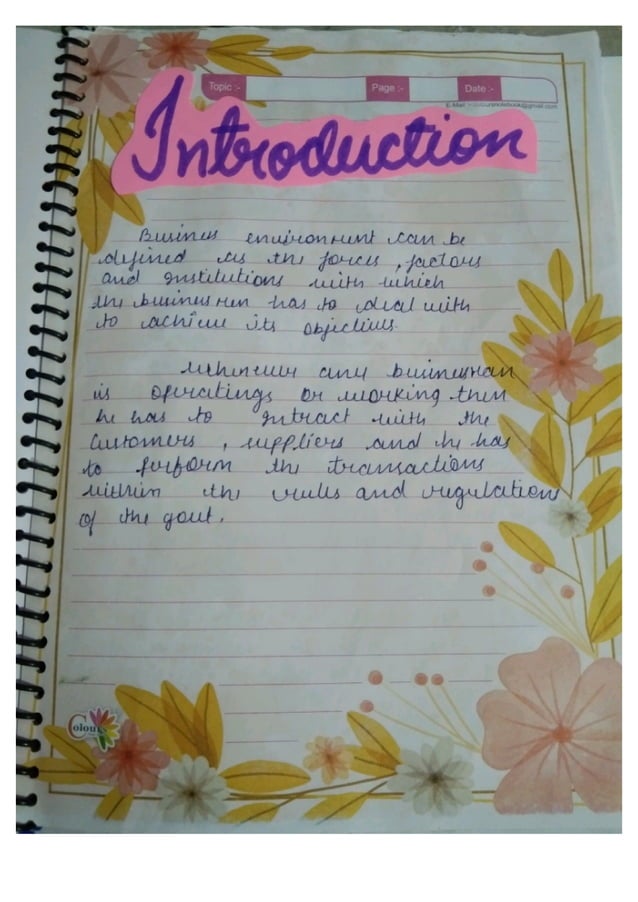 Topic :-
Page :-
Date :-
Introduction
Business environment can be
defined as the forces, factors
and institutions with which
the businessmen has to deal with
to achieve its objectives.
Whenever any businessman
is operatings or working then
he has to intract with the
Customers, suppliers and he has
to perform the transactions
within the rules and regulations
of the govt.
Colours